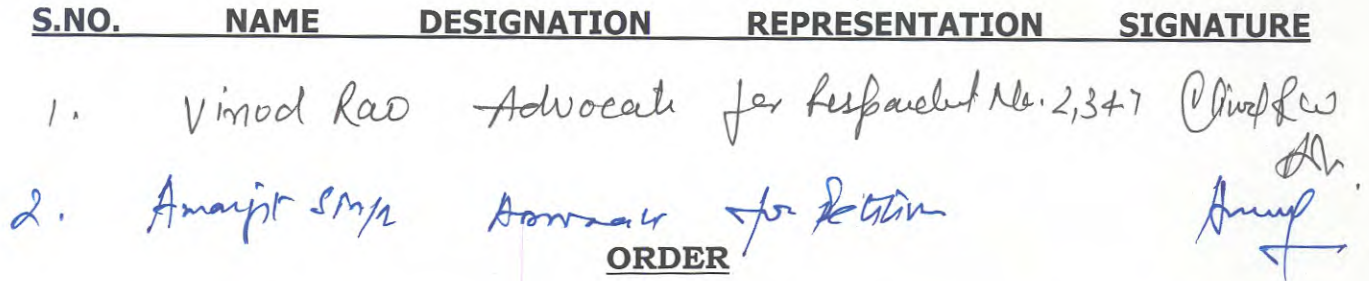 S.NO. NAME DESIGNATION REPRESENTATION SIGNATURE
1. Vinod Rao Advocate for Respondent No. 2,3+7
2. Amarjit Singh Advocate for Petition
ORDER